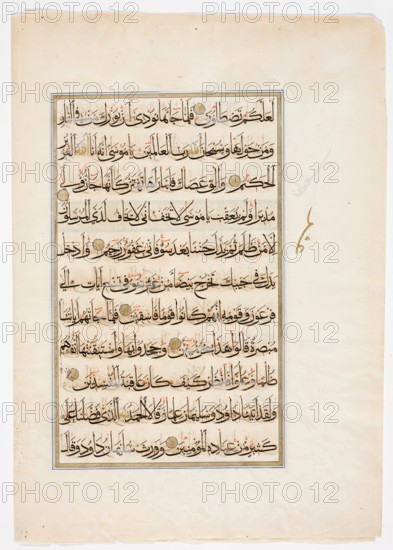 لعلكم تصطلون فلما جاءها نودي ان بورك من في النار
ومن حولها وسبحان الله رب العالمين يا موسى انه انا الله العزيز
الحكيم والق عصاك فلما رآها تهتز كانها جان ولى
مدبرا ولم يعقب يا موسى لا تخف اني لا يخاف لدي المرسلون
الا من ظلم ثم بدل حسنا بعد سوء فاني غفور رحيم وادخل
يدك في جيبك تخرج بيضاء من غير سوء في تسع آيات الى
فرعون وقومه انهم كانوا قوما فاسقين فلما جاءتهم آياتنا
مبصرة قالوا هذا سحر مبين وجحدوا بها واستيقنتها انفسهم
ظلما وعلوا فانظر كيف كان عاقبة المفسدين
ولقد آتينا داود وسليمان علما وقالا الحمد لله الذي فضلنا على
كثير من عباده المؤمنين وورث سليمان داود وقال
PHOTO 12